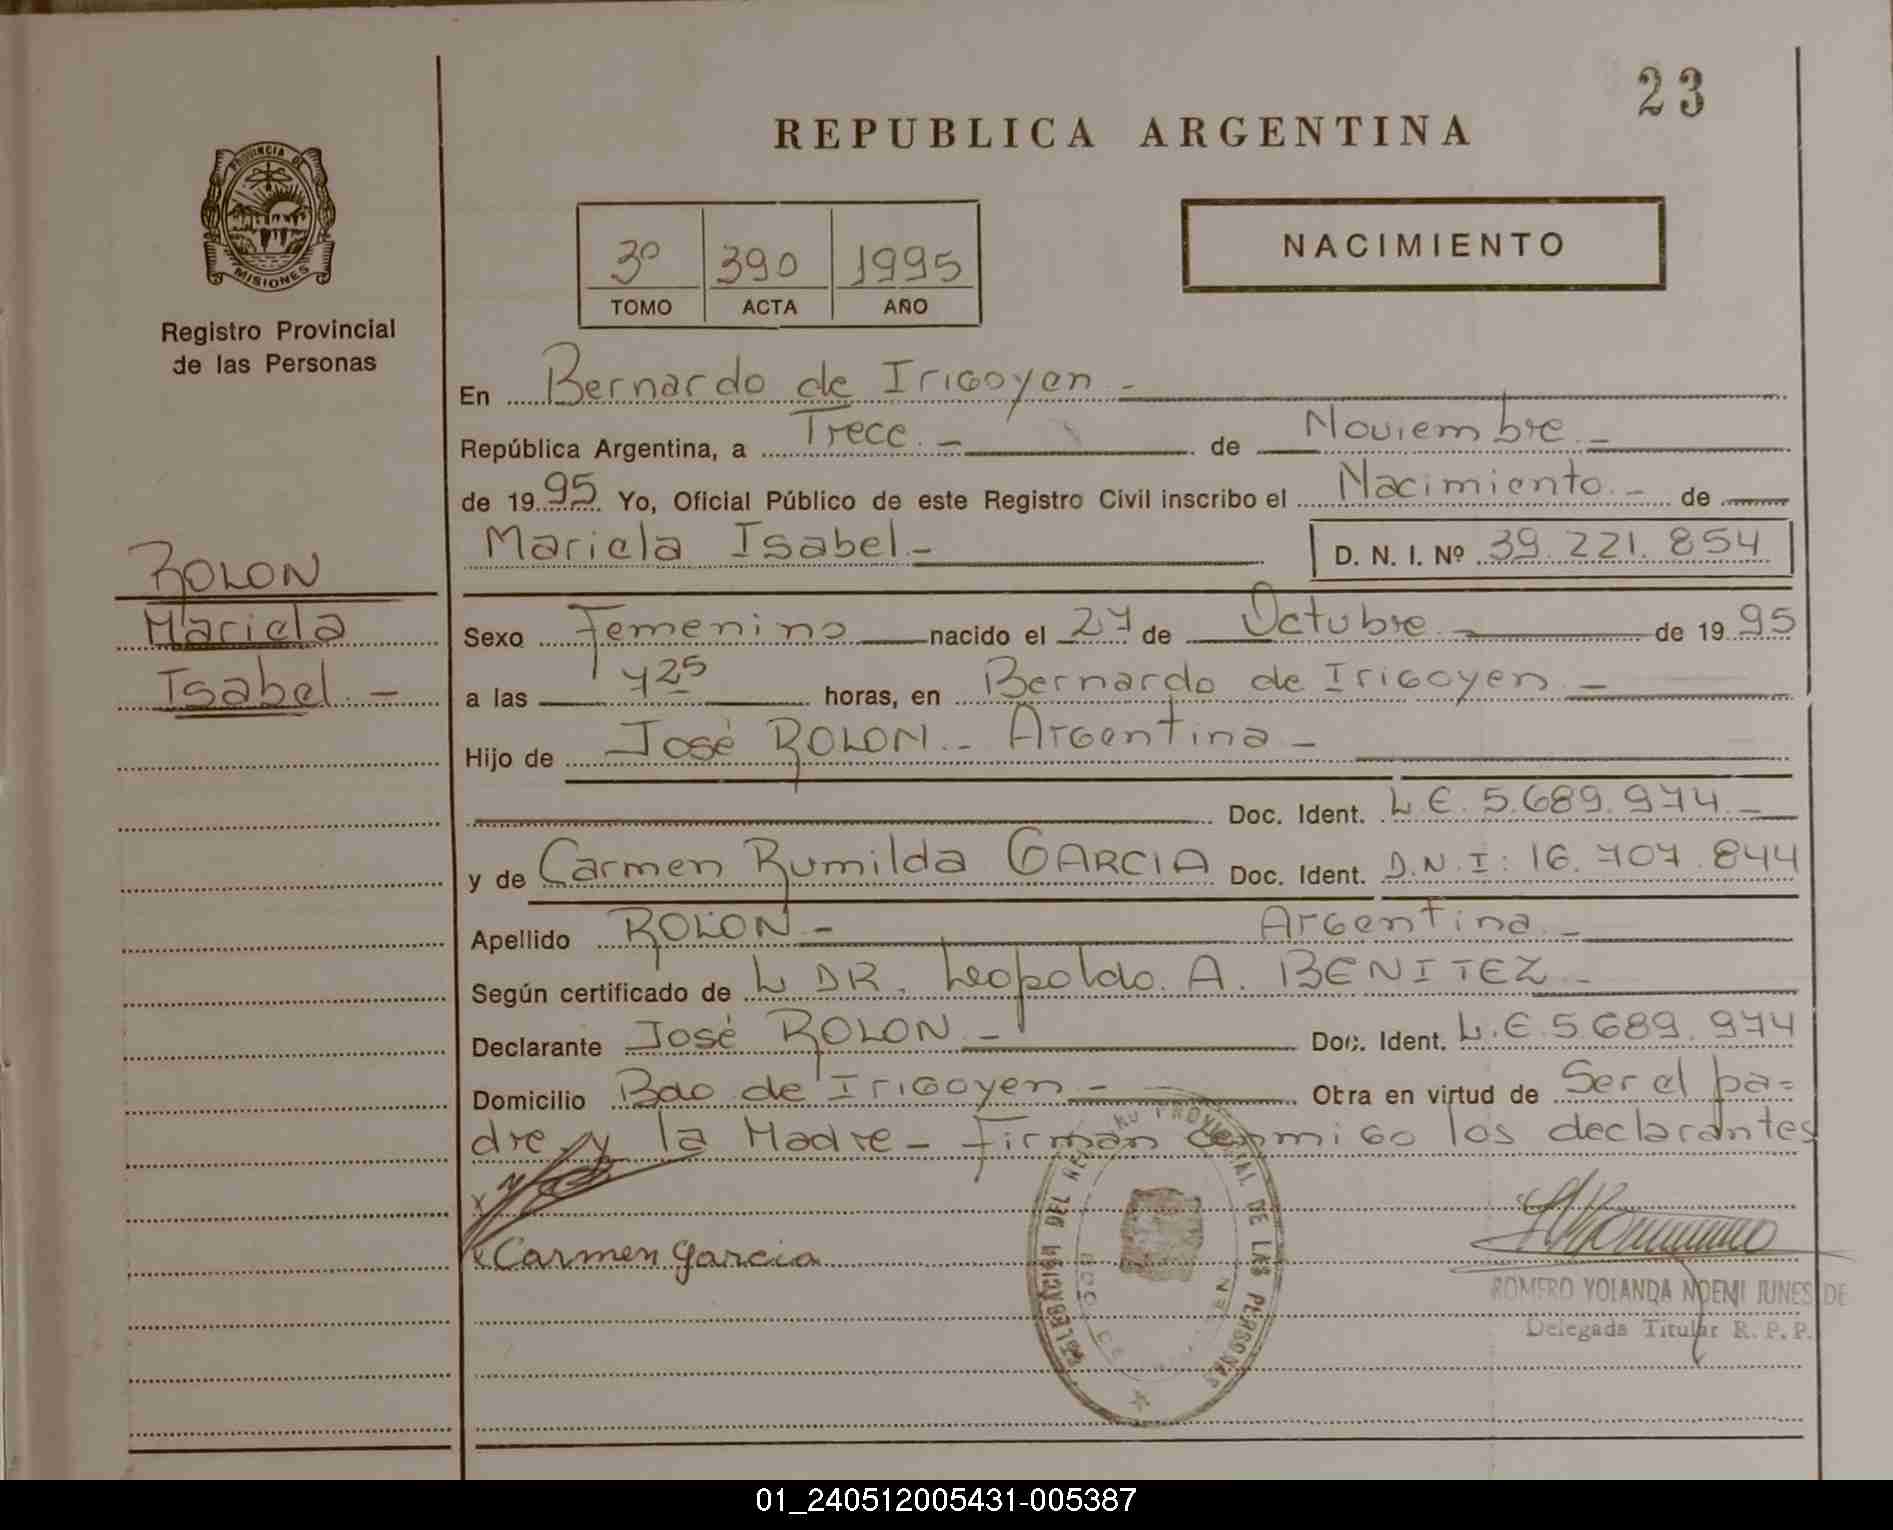 23
REPUBLICA ARGENTINA
PROVINCIA DE
MISIONES
Registro Provincial
de las Personas
3º 390 1995
TOMO ACTA AÑO
NACIMIENTO
En Bernardo de Irigoyen -
República Argentina, a Trece - de Noviembre -
de 1995 Yo, Oficial Público de este Registro Civil inscribo el Nacimiento - de
Mariela Isabel - D. N. I. Nº 39.221.854
ROLON
Mariela
Isabel -
Sexo Femenino nacido el 27 de Octubre - de 1995
a las 7 25 horas, en Bernardo de Irigoyen -
Hijo de José ROLON - Argentina -
Doc. Ident. L E. 5.689.974 -
y de Carmen Rumilda GARCIA Doc. Ident. D.N.I: 16.707.844
Apellido ROLON - Argentina -
Según certificado de L DR. Leopoldo. A. BENITEZ -
Declarante José ROLON - Doc. Ident. L.E 5.689.974
Domicilio Bdo de Irigoyen - Obra en virtud de Ser el pa=
dre y la Madre - Firman conmigo los declarantes
x
x Carmen Garcia
DELEGACION DEL REGISTRO PROVINCIAL DE LAS PERSONAS
ROMERO YOLANDA NOEMI JUNES DE
Delegada Titular R. P. P.
01_240512005431-005387